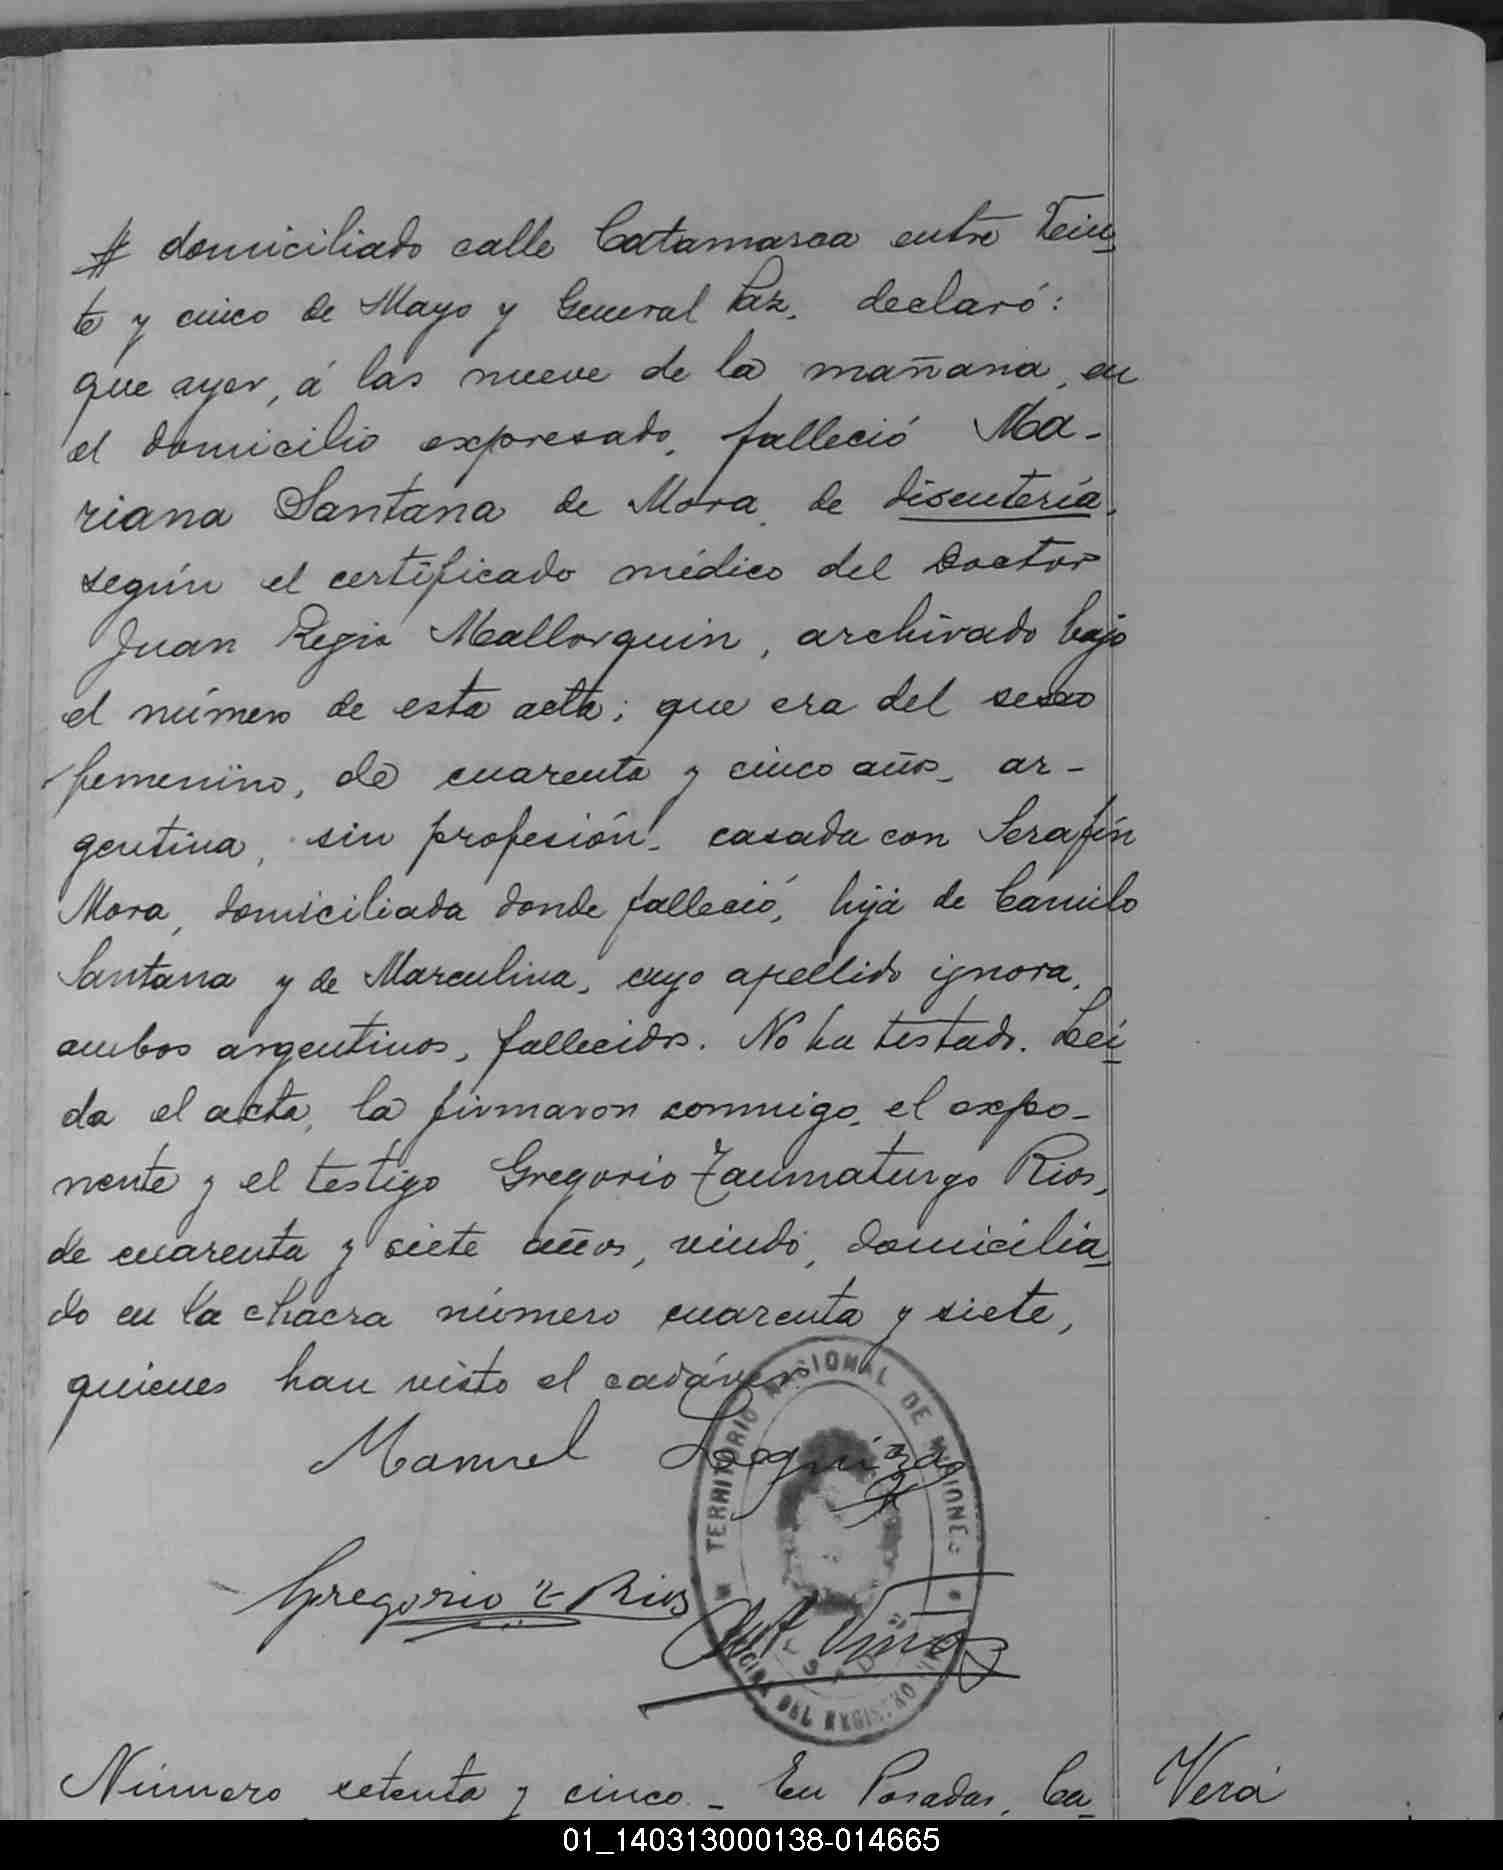 # domiciliado calle Catamarca entre Vein
te y cinco de Mayo y General Paz, declaró:
que ayer, á las nueve de la mañana, en
el domicilio expresado, falleció Ma-
riana Santana de Mora, de disentería,
según el certificado médico del Doctor
Juan Regis Mallorquin, archivado bajo
el número de esta acta; que era del sexo
femenino, de cuarenta y cinco años, ar-
gentina, sin profesión, casada con Serafín
Mora, domiciliada donde falleció, hija de Camilo
Santana y de Marculina, cuyo apellido ignora,
ambos argentinos, fallecidos. No ha testado. Leí
da el acta, la firmaron conmigo, el expo-
nente y el testigo Gregorio Taumaturgo Rios,
de cuarenta y siete años, viudo, domicilia
do en la chacra número cuarenta y siete,
quienes han visto el cadáver.
Manuel Leguiza
Gregorio T Rios
TERRITORIO NACIONAL DE MISIONES
OFICINA DEL REGISTRO CIVIL
Número setenta y cinco - En Posadas, Ca
Verá
01_140313000138-014665